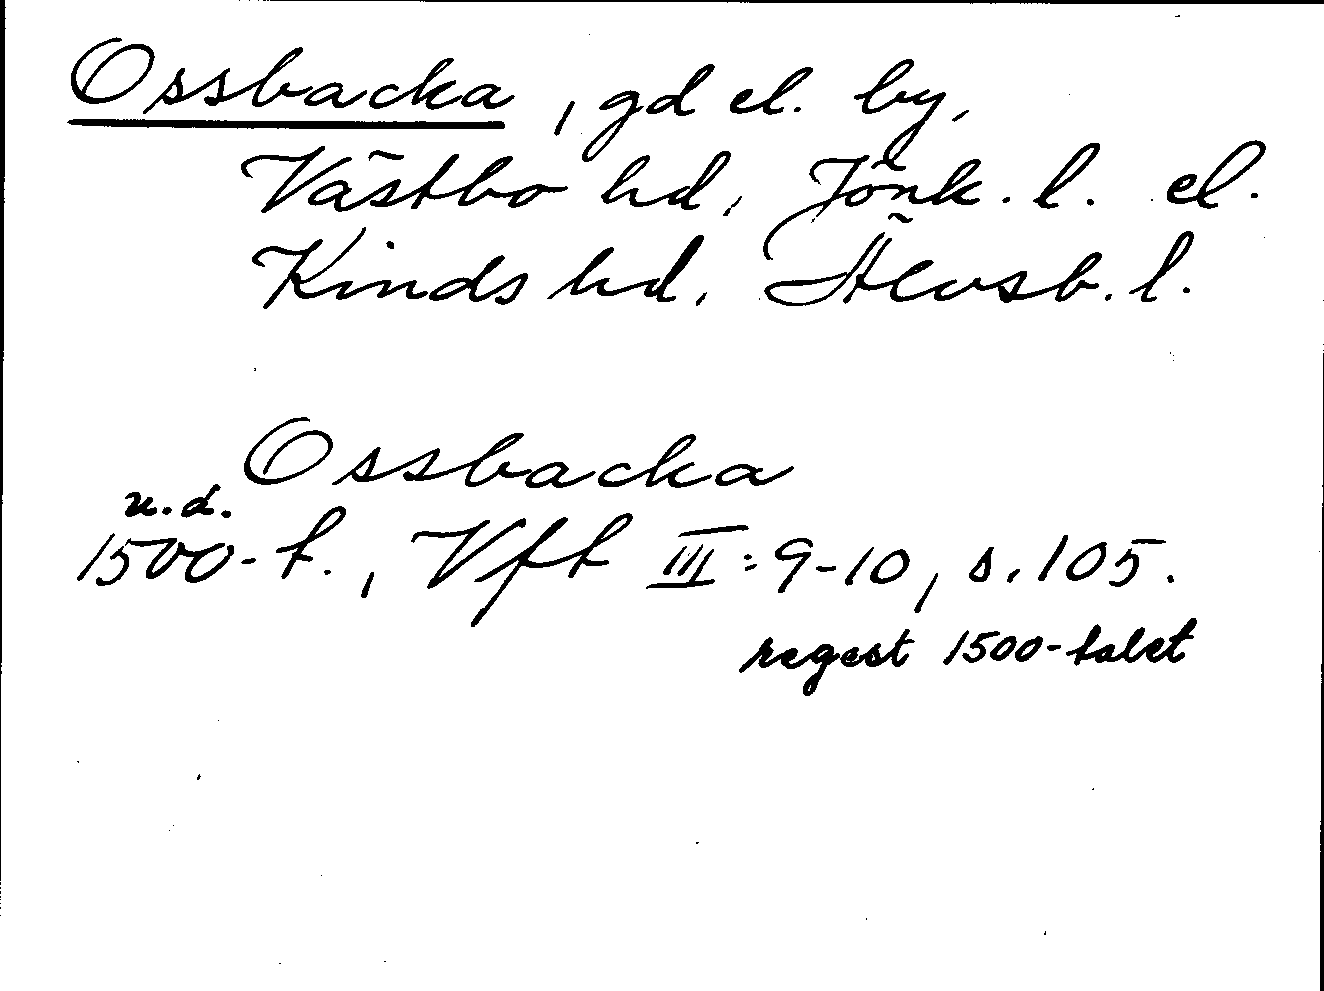 Ossbacka, gd el. by,
Västbo hd, Jönk. l. el.
Kinds hd, Älvsb. l.
Ossbacka
u.d.
1500-t., Vft III: 9-10, s. 105.
regest 1500-talet